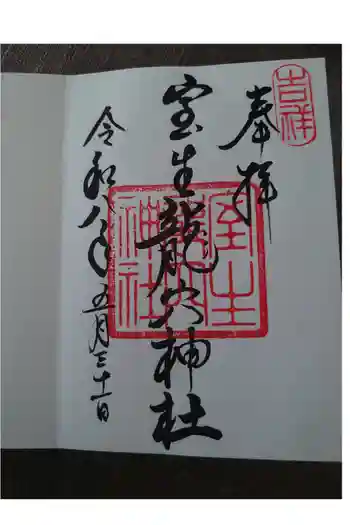 吉祥
奉拝
室生龍穴神社
室生龍穴神社
令和八年五月三十一日